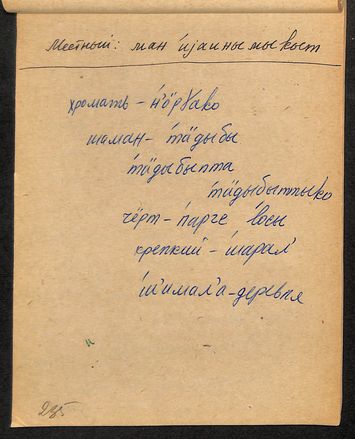 Местный: ман ӣјаины мы кыт
хромать – н'ӧрɣако
шаман – тӓдыбы
тӓдыбыпта
тӓдыбытпыко
чёрт – парге 'лосы
крепкий – шарал'
ш'имал'а – деревня
225.